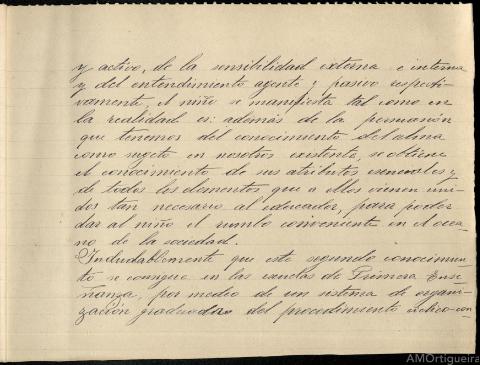 y activo, de la sensibilidad externa e interna
y del entendimiento agente y pasivo respecti-
vamente, el niño se manifiesta tal como en
la realidad es: además de la persuasión
que tenemos del conocimiento del alma
como sugeto en nosotros existente, se obtiene
el conocimiento de sus atributos esenciales y
de todos los elementos que a ellos vienen uni-
dos tan necesario al educador, para poder
dar al niño el rumbo conveniente en el ocea-
no de la sociedad.
Indudablemente que este segundo conocimien-
to se consigue en las escuelas de Primera Ense-
ñanza, por medio de un sistema de organi-
zación graduada del procedimiento
AMOrtigueira